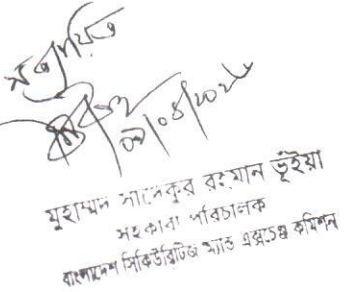 সত্যায়িত
মুহাম্মদ সাদেকুর রহমান ভূঁইয়া
সহকারী পরিচালক
বাংলাদেশ সিকিউরিটিজ অ্যান্ড এক্সচেঞ্জ কমিশন